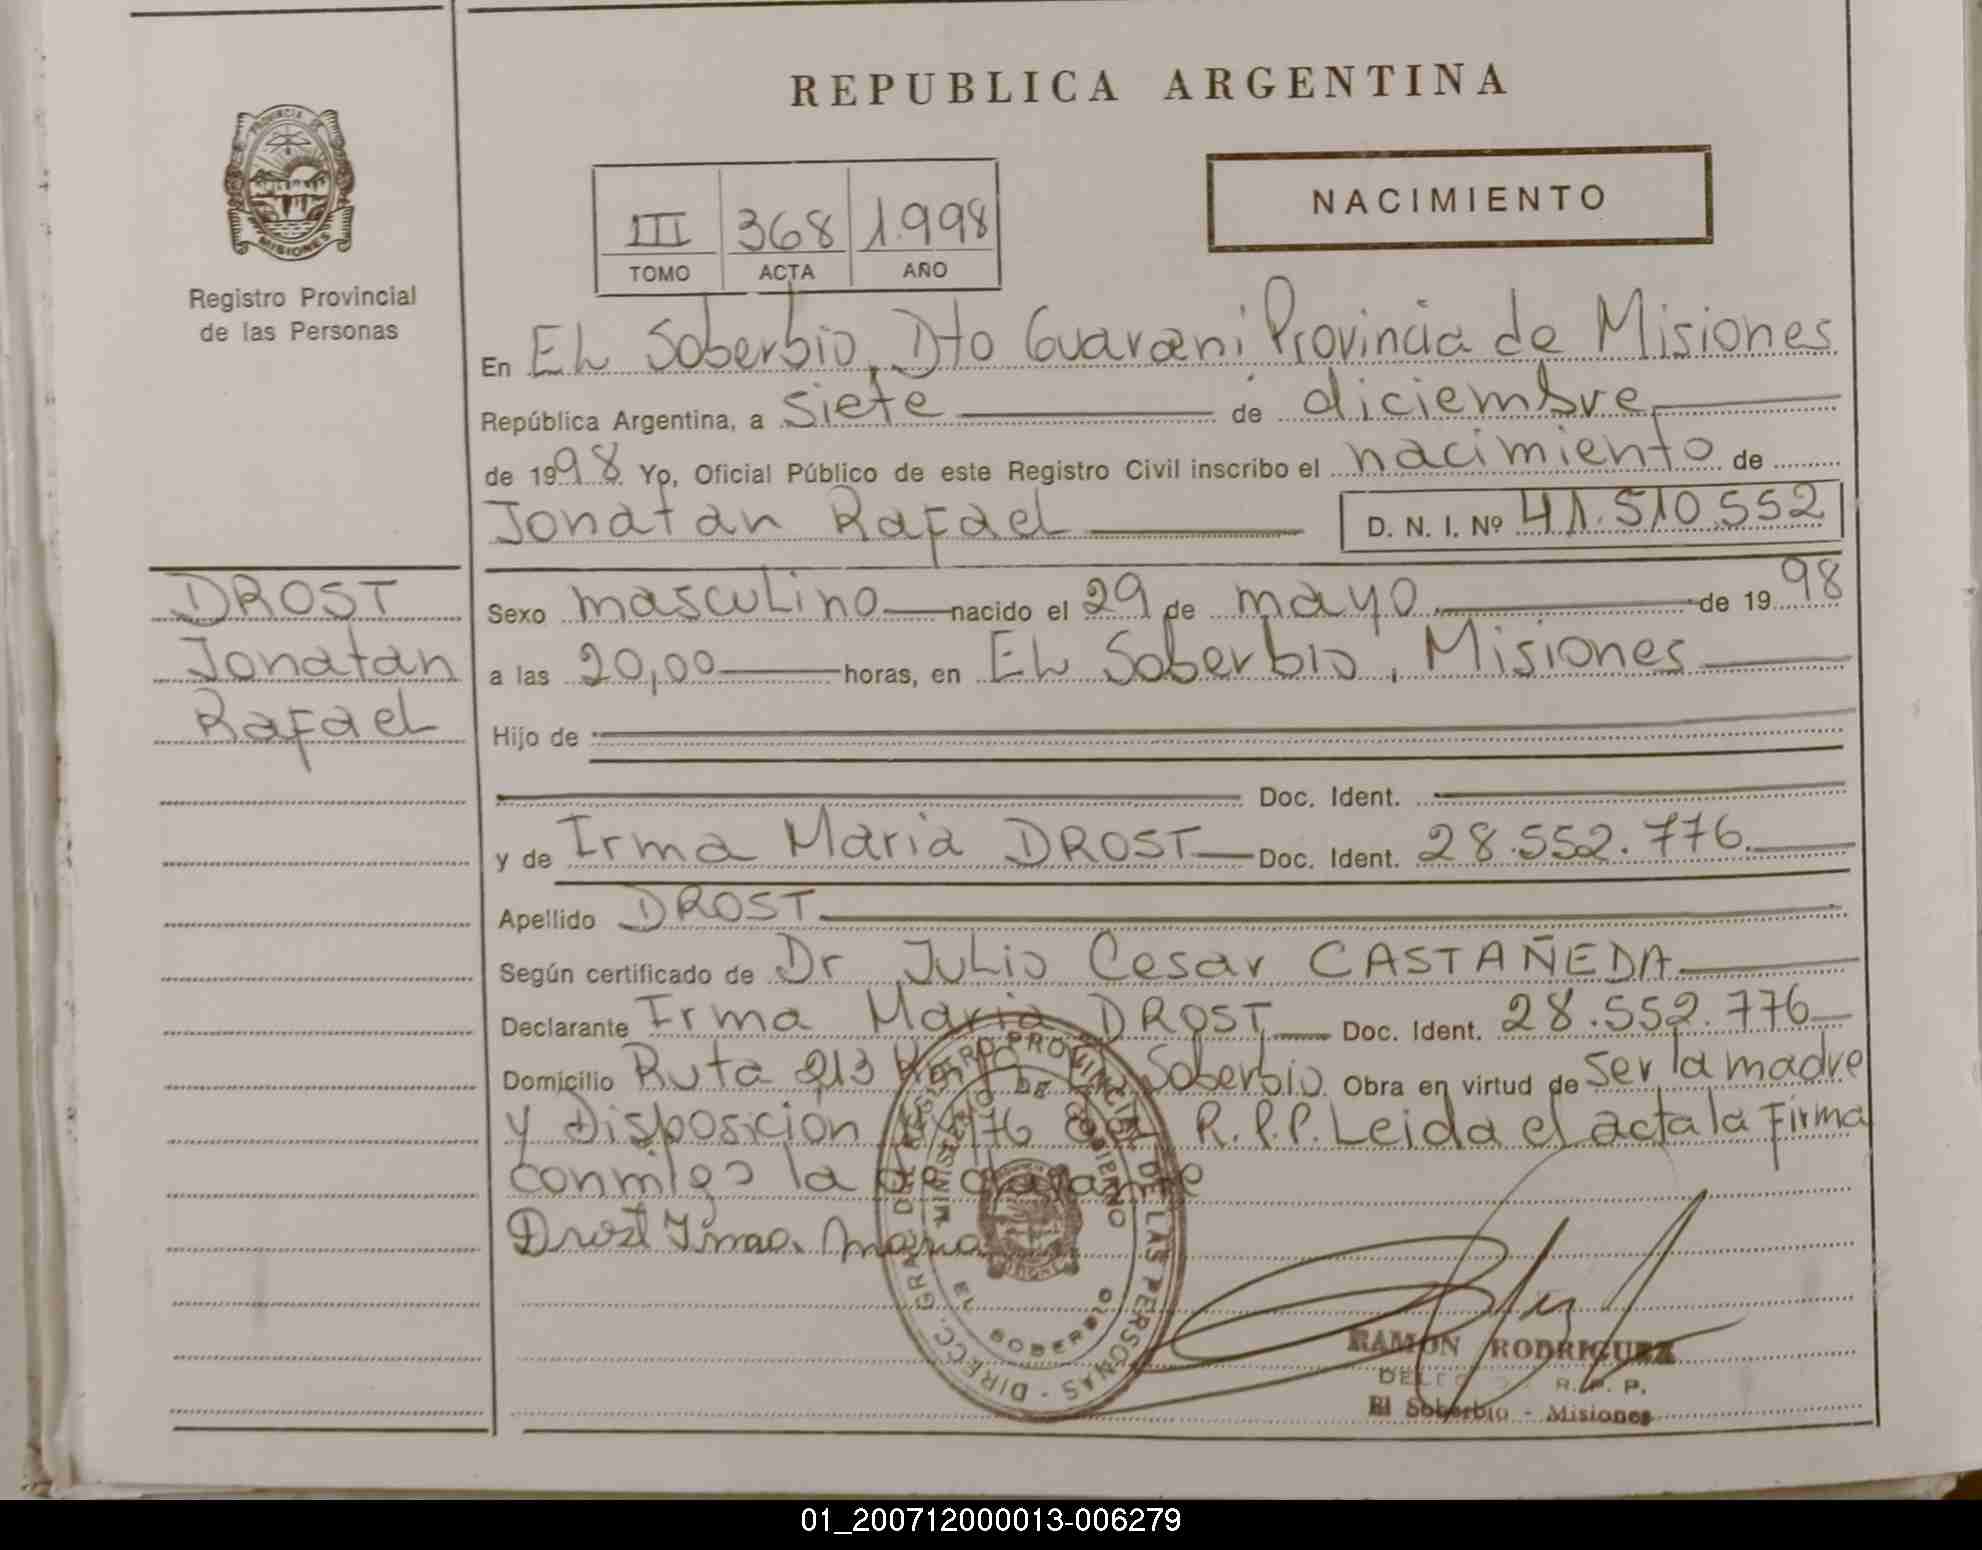 REPUBLICA ARGENTINA
NACIMIENTO
III 368 1.998
TOMO ACTA AÑO
PROVINCIA DE MISIONES
Registro Provincial
de las Personas
En EL Soberbio, Dto Guarani Provincia de Misiones
República Argentina, a siete de diciembre
de 1998 Yo, Oficial Público de este Registro Civil inscribo el nacimiento de
Jonatan Rafael D. N. I. Nº 41.510.552
DROST
Jonatan
Rafael
Sexo masculino nacido el 29 de mayo de 1998
a las 20,00 horas, en EL Soberbio, Misiones
Hijo de
Doc. Ident.
y de Irma Maria DROST Doc. Ident. 28.552.776
Apellido DROST
Según certificado de Dr Julio Cesar CASTAÑEDA
Declarante Irma Maria DROST Doc. Ident. 28.552.776
Domicilio Ruta 213 Soberbio Obra en virtud de ser la madre
y Disposición R.P.P. Leida el acta la firma
conmigo la declarante
Drost Irma Maria
DIRECC. GRAL. DEL REGISTRO PROVINCIAL DE LAS PERSONAS
MINISTERIO DE GOBIERNO
EL SOBERBIO
RAMON RODRIGUEZ
R. P. P.
El Soberbio - Misiones
01_200712000013-006279